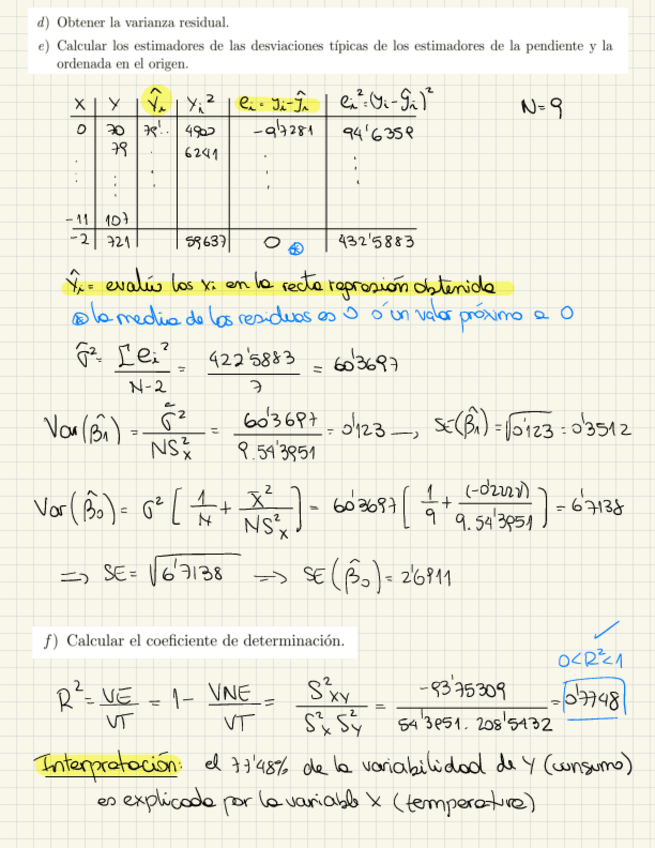 d) Obtener la varianza residual.
e) Calcular los estimadores de las desviaciones típicas de los estimadores de la pendiente y la
ordenada en el origen.
X | Y | Ŷi | Yi² | ei = yi-ŷi | ei²=(yi-ŷi)² N=9
0 70 79'.. 4900 -9'7281 94'6359
79 . 6241 . .
. . . . .
-11 107
-2 721 59637 0 ⊛ 432'5883
Ŷi = evalúo los xi en la recta regresión obtenida
⊛ la media de los residuos es 0 ó un valor próximo a 0
σ̂² = Σei² / N-2 = 422'5883 / 7 = 60'3697
Var(β̂1) = σ̂² / NSx² = 60'3697 / 9.54'3951 = 0'123 → SE(β̂1) = √0'123 = 0'3512
Var(β̂0) = σ² [ 1/N + x̄² / NSx² ] = 60'3697 [ 1/9 + (-0'2222) / 9.54'3951 ] = 6'7138
=> SE = √6'7138 => SE(β̂0) = 2'5911
f) Calcular el coeficiente de determinación.
✓
0<R²<1
R² = VE / VT = 1 - VNE / VT = S²xy / S²x S²y = -93'75309 / 54'3951 . 208'5432 = 0'7748
Interpretación: el 77'48% de la variabilidad de Y (consumo)
es explicada por la variable X (temperatura)